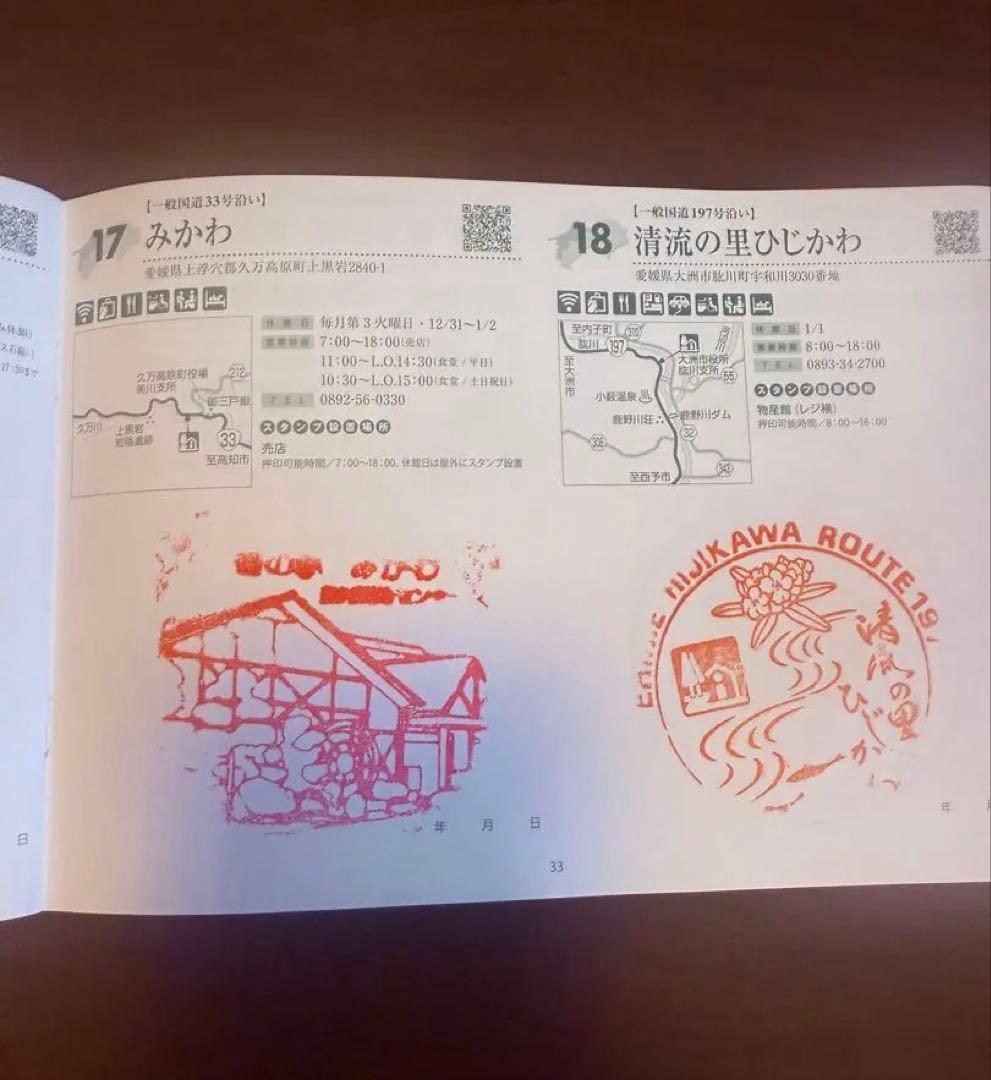 【一般国道33号沿い】
17 みかわ
愛媛県上浮穴郡久万高原町上黒岩2840-1
休館日 毎月第3火曜日・12/31~1/2
営業時間 7:00~18:00(売店)
11:00~L.O.14:30(食堂/平日)
10:30~L.O.15:00(食堂/土日祝日)
TEL 0892-56-0330
スタンプ設置場所
売店
押印可能時間/7:00~18:00、休館日は屋外にスタンプ設置
久万高原町役場
美川支所
212
御三戸嶽
久万川
上黒岩
岩陰遺跡
33
至高知市
みかわ
年 月 日
【一般国道197号沿い】
18 清流の里ひじかわ
愛媛県大洲市肱川町宇和川3030番地
休館日 1/1
営業時間 8:00~18:00
TEL 0893-34-2700
スタンプ設置場所
物産館(レジ横)
押印可能時間/8:00~18:00
至内子町
310
河辺川
肱川
197
至大洲市
大洲市役所
肱川支所
55
小薮温泉
鹿野川荘
鹿野川ダム
32
308
343
至西予市
EHIME HIJIKAWA ROUTE 197
清流の里
ひじかわ
年
33
日
17:30まで